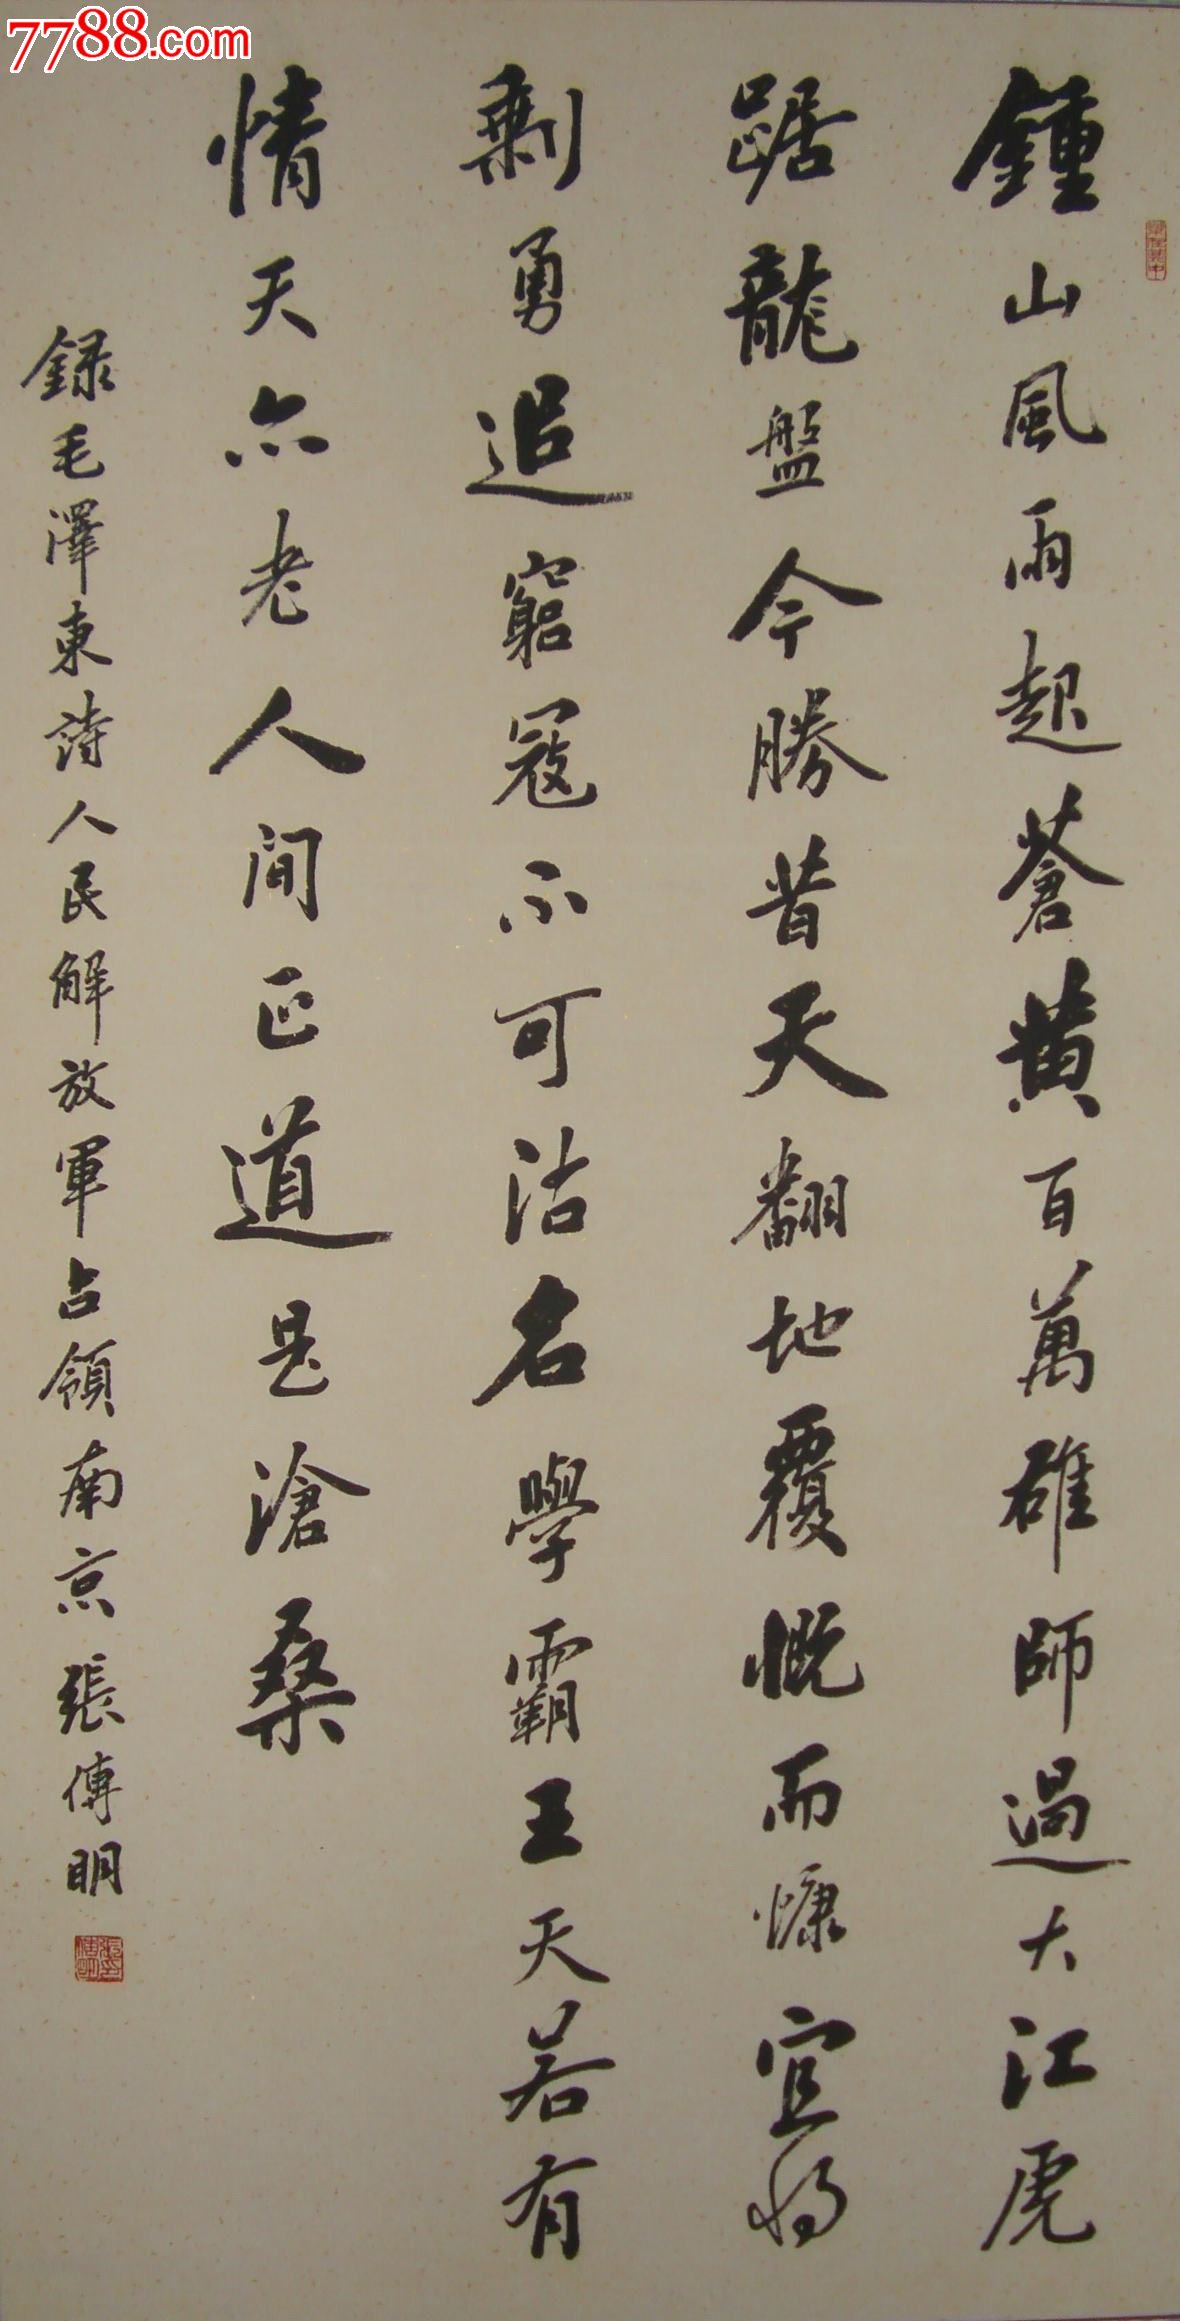 7788.com
鍾山風雨起蒼黄百萬雄師過大江虎
踞龍盤今勝昔天翻地覆慨而慷宜将
剩勇追窮寇不可沽名學霸王天若有
情天亦老人間正道是滄桑
録毛澤東詩人民解放軍占領南京張傳明